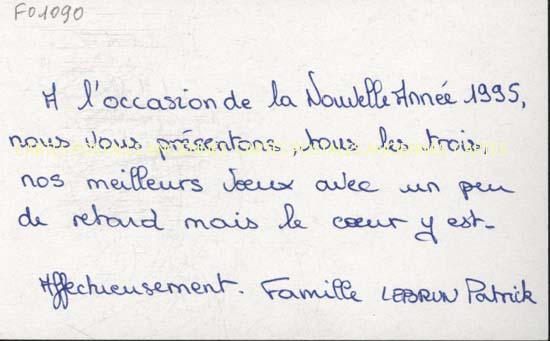 F01090
A l'occasion de la Nouvelle Année 1995,
nous vous présentons, tous les trois,
nos meilleurs vœux avec un peu
de retard mais le cœur y est.
Affectueusement. Famille LEBRUN Patrick